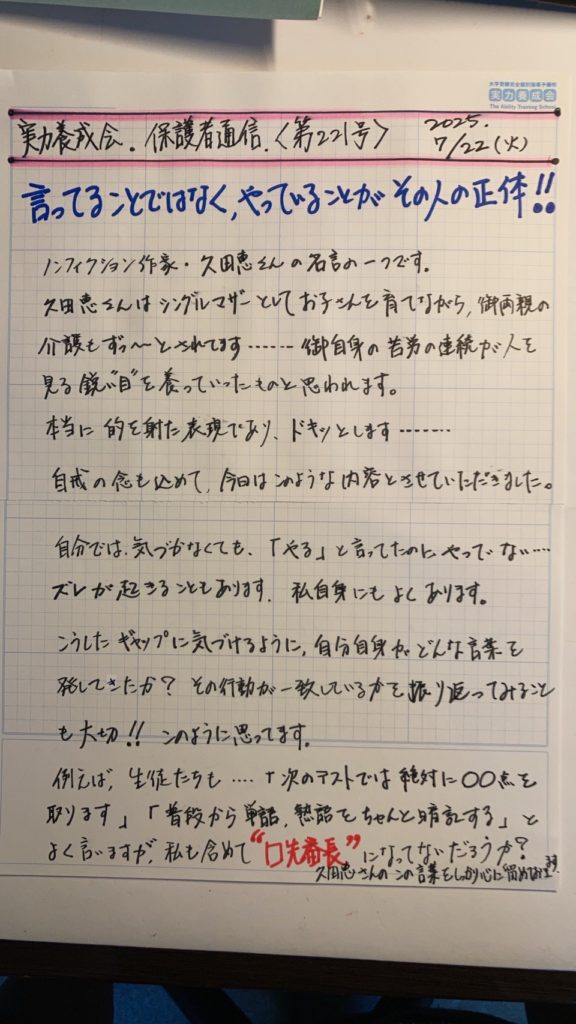 大学受験完全個別指導予備校
実力養成会
The Ability Training School
実力養成会.保護者通信.〈第221号〉
2025.
7/22(火)
言ってることではなく,やっていることがその人の正体!!
ノンフィクション作家・久田恵さんの名言の一つです。
久田恵さんはシングルマザーとしてお子さんを育てながら,御両親の
介護もずっ〜とされてます……御自身の苦労の連続が人を
見る鋭い"目"を養っていったものと思われます。
本当に的を射た表現であり、ドキッとします……
自戒の念も込めて,今日はこのような内容とさせていただきました。
自分では、気づかなくても、「やる」と言ってたのにやってない…
ズレが起きることもあります、私自身にもよくあります。
こうしたギャップに気づけるように,自分自身がどんな言葉を
発してきたか?その行動が一致しているかを振り返ってみること
も大切!!このように思ってます。
例えば,生徒たちも…「次のテストでは絶対に〇〇点を
取ります」「普段から単語,熟語をちゃんと暗記する」と
よく言いますが,私も含めて"口先番長"になってないだろうか?
久田恵さんのこの言葉をしっかり心に留めてます